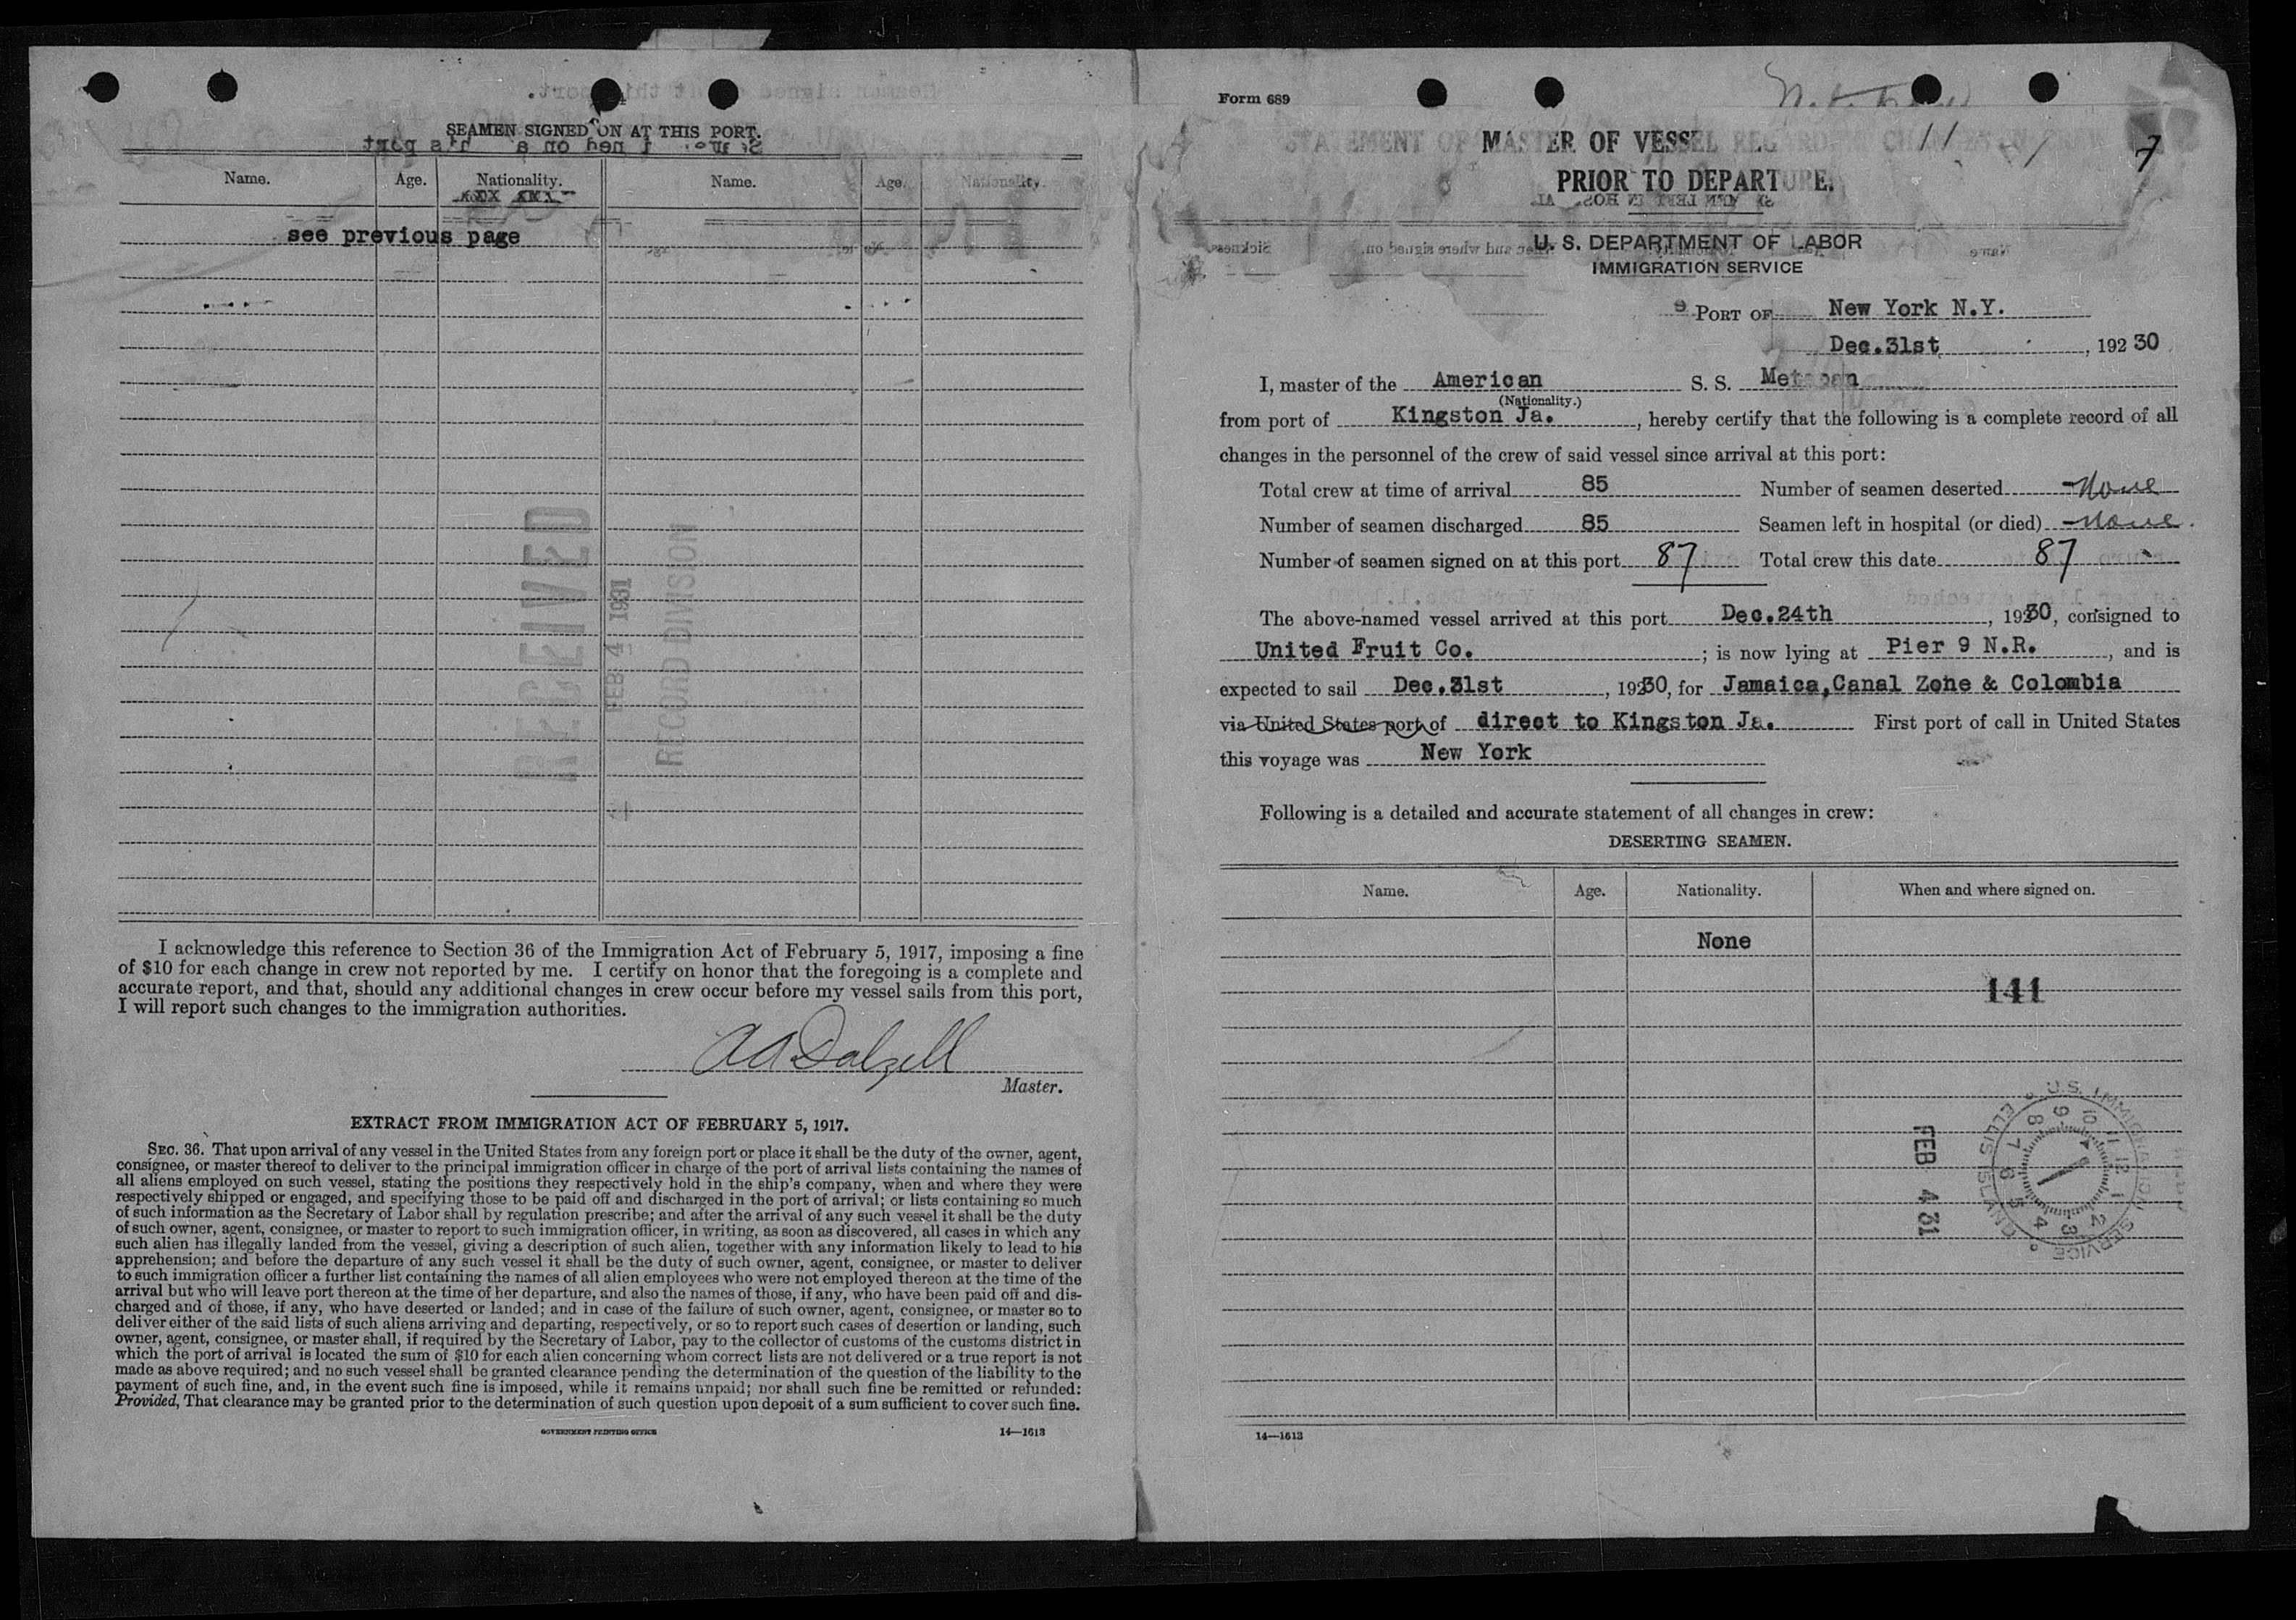 SEAMEN SIGNED ON AT THIS PORT.
Name. Age. Nationality. Name. Age. Nationality.
see previous page
RECEIVED
FEB 4 1931
RECORD DIVISION
I acknowledge this reference to Section 36 of the Immigration Act of February 5, 1917, imposing a fine
of $10 for each change in crew not reported by me. I certify on honor that the foregoing is a complete and
accurate report, and that, should any additional changes in crew occur before my vessel sails from this port,
I will report such changes to the immigration authorities.
AA Dalzell
Master.
EXTRACT FROM IMMIGRATION ACT OF FEBRUARY 5, 1917.
SEC. 36. That upon arrival of any vessel in the United States from any foreign port or place it shall be the duty of the owner, agent,
consignee, or master thereof to deliver to the principal immigration officer in charge of the port of arrival lists containing the names of
all aliens employed on such vessel, stating the positions they respectively hold in the ship's company, when and where they were
respectively shipped or engaged, and specifying those to be paid off and discharged in the port of arrival; or lists containing so much
of such information as the Secretary of Labor shall by regulation prescribe; and after the arrival of any such vessel it shall be the duty
of such owner, agent, consignee, or master to report to such immigration officer, in writing, as soon as discovered, all cases in which any
such alien has illegally landed from the vessel, giving a description of such alien, together with any information likely to lead to his
apprehension; and before the departure of any such vessel it shall be the duty of such owner, agent, consignee, or master to deliver
to such immigration officer a further list containing the names of all alien employees who were not employed thereon at the time of the
arrival but who will leave port thereon at the time of her departure, and also the names of those, if any, who have been paid off and dis-
charged and of those, if any, who have deserted or landed; and in case of the failure of such owner, agent, consignee, or master so to
deliver either of the said lists of such aliens arriving and departing, respectively, or so to report such cases of desertion or landing, such
owner, agent, consignee, or master shall, if required by the Secretary of Labor, pay to the collector of customs of the customs district in
which the port of arrival is located the sum of $10 for each alien concerning whom correct lists are not delivered or a true report is not
made as above required; and no such vessel shall be granted clearance pending the determination of the question of the liability to the
payment of such fine, and, in the event such fine is imposed, while it remains unpaid; nor shall such fine be remitted or refunded:
Provided, That clearance may be granted prior to the determination of such question upon deposit of a sum sufficient to cover such fine.
GOVERNMENT PRINTING OFFICE 14—1613
Form 689
11
7
STATEMENT OF MASTER OF VESSEL REGARDING CHANGES IN CREW
PRIOR TO DEPARTURE.
U. S. DEPARTMENT OF LABOR
IMMIGRATION SERVICE
PORT OF New York N.Y.
Dec.31st, 192 30
I, master of the American S. S. Metapan
(Nationality.)
from port of Kingston Ja., hereby certify that the following is a complete record of all
changes in the personnel of the crew of said vessel since arrival at this port:
Total crew at time of arrival 85 Number of seamen deserted None
Number of seamen discharged 85 Seamen left in hospital (or died) None.
Number of seamen signed on at this port 87 Total crew this date 87
The above-named vessel arrived at this port Dec.24th, 19230, consigned to
United Fruit Co.; is now lying at Pier 9 N.R., and is
expected to sail Dec.31st, 19230, for Jamaica,Canal Zone & Colombia
via United States port of direct to Kingston Ja. First port of call in United States
this voyage was New York
Following is a detailed and accurate statement of all changes in crew:
DESERTING SEAMEN.
Name. Age. Nationality. When and where signed on.
None
141
U.S. IMMIGRATION SERVICE
ELLIS ISLAND
FEB 4 31
14—1613